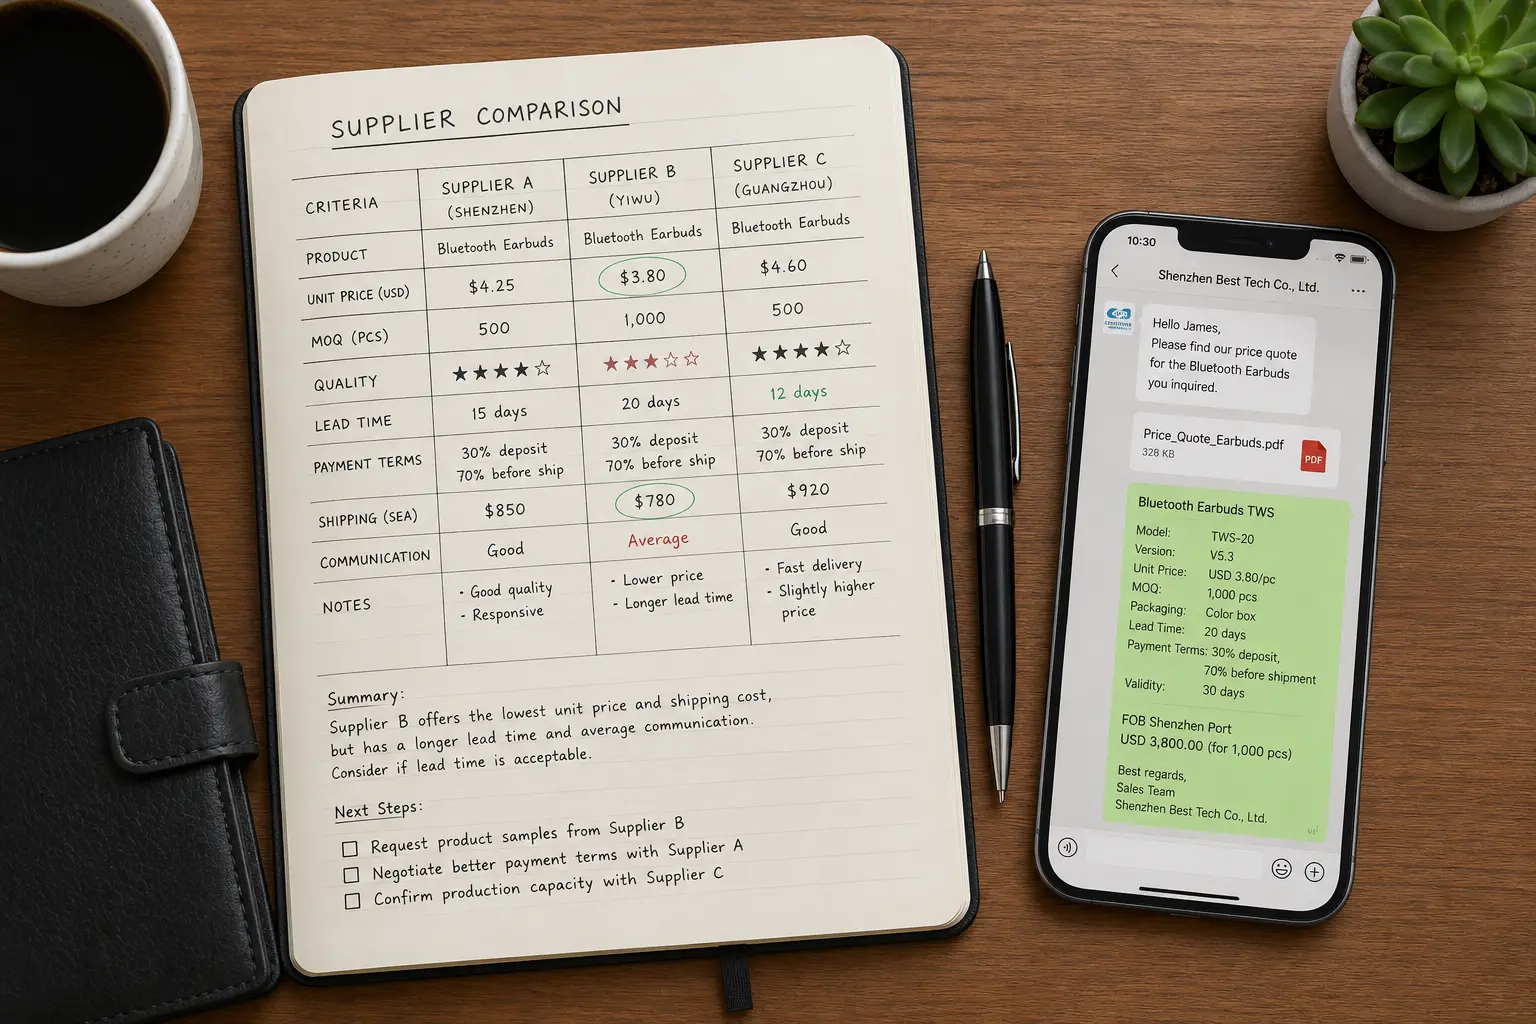 SUPPLIER COMPARISON
CRITERIA
SUPPLIER A
(SHENZHEN)
SUPPLIER B
(YIWU)
SUPPLIER C
(GUANGZHOU)
PRODUCT
Bluetooth Earbuds
Bluetooth Earbuds
Bluetooth Earbuds
UNIT PRICE (USD)
$4.25
$3.80
$4.60
MOQ (PCS)
500
1,000
500
QUALITY
★★★★☆
★★★☆☆
★★★★☆
LEAD TIME
15 days
20 days
12 days
PAYMENT TERMS
30% deposit
70% before ship
30% deposit
70% before ship
30% deposit
70% before ship
SHIPPING (SEA)
$850
$780
$920
COMMUNICATION
Good
Average
Good
NOTES
- Good quality
- Responsive
- Lower price
- Longer lead time
- Fast delivery
- Slightly higher
price
Summary:
Supplier B offers the lowest unit price and shipping cost,
but has a longer lead time and average communication.
Consider if lead time is acceptable.
Next Steps:
Request product samples from Supplier B
Negotiate better payment terms with Supplier A
Confirm production capacity with Supplier C
10:30
Shenzhen Best Tech Co., Ltd.
Hello James,
Please find our price quote
for the Bluetooth Earbuds
you inquired.
Price_Quote_Earbuds.pdf
328 KB
PDF
Bluetooth Earbuds TWS
Model: TWS-20
Version: V5.3
Unit Price: USD 3.80/pc
MOQ: 1,000 pcs
Packaging: Color box
Lead Time: 20 days
Payment Terms: 30% deposit,
70% before shipment
Validity: 30 days
FOB Shenzhen Port
USD 3,800.00 (for 1,000 pcs)
Best regards,
Sales Team
Shenzhen Best Tech Co., Ltd.